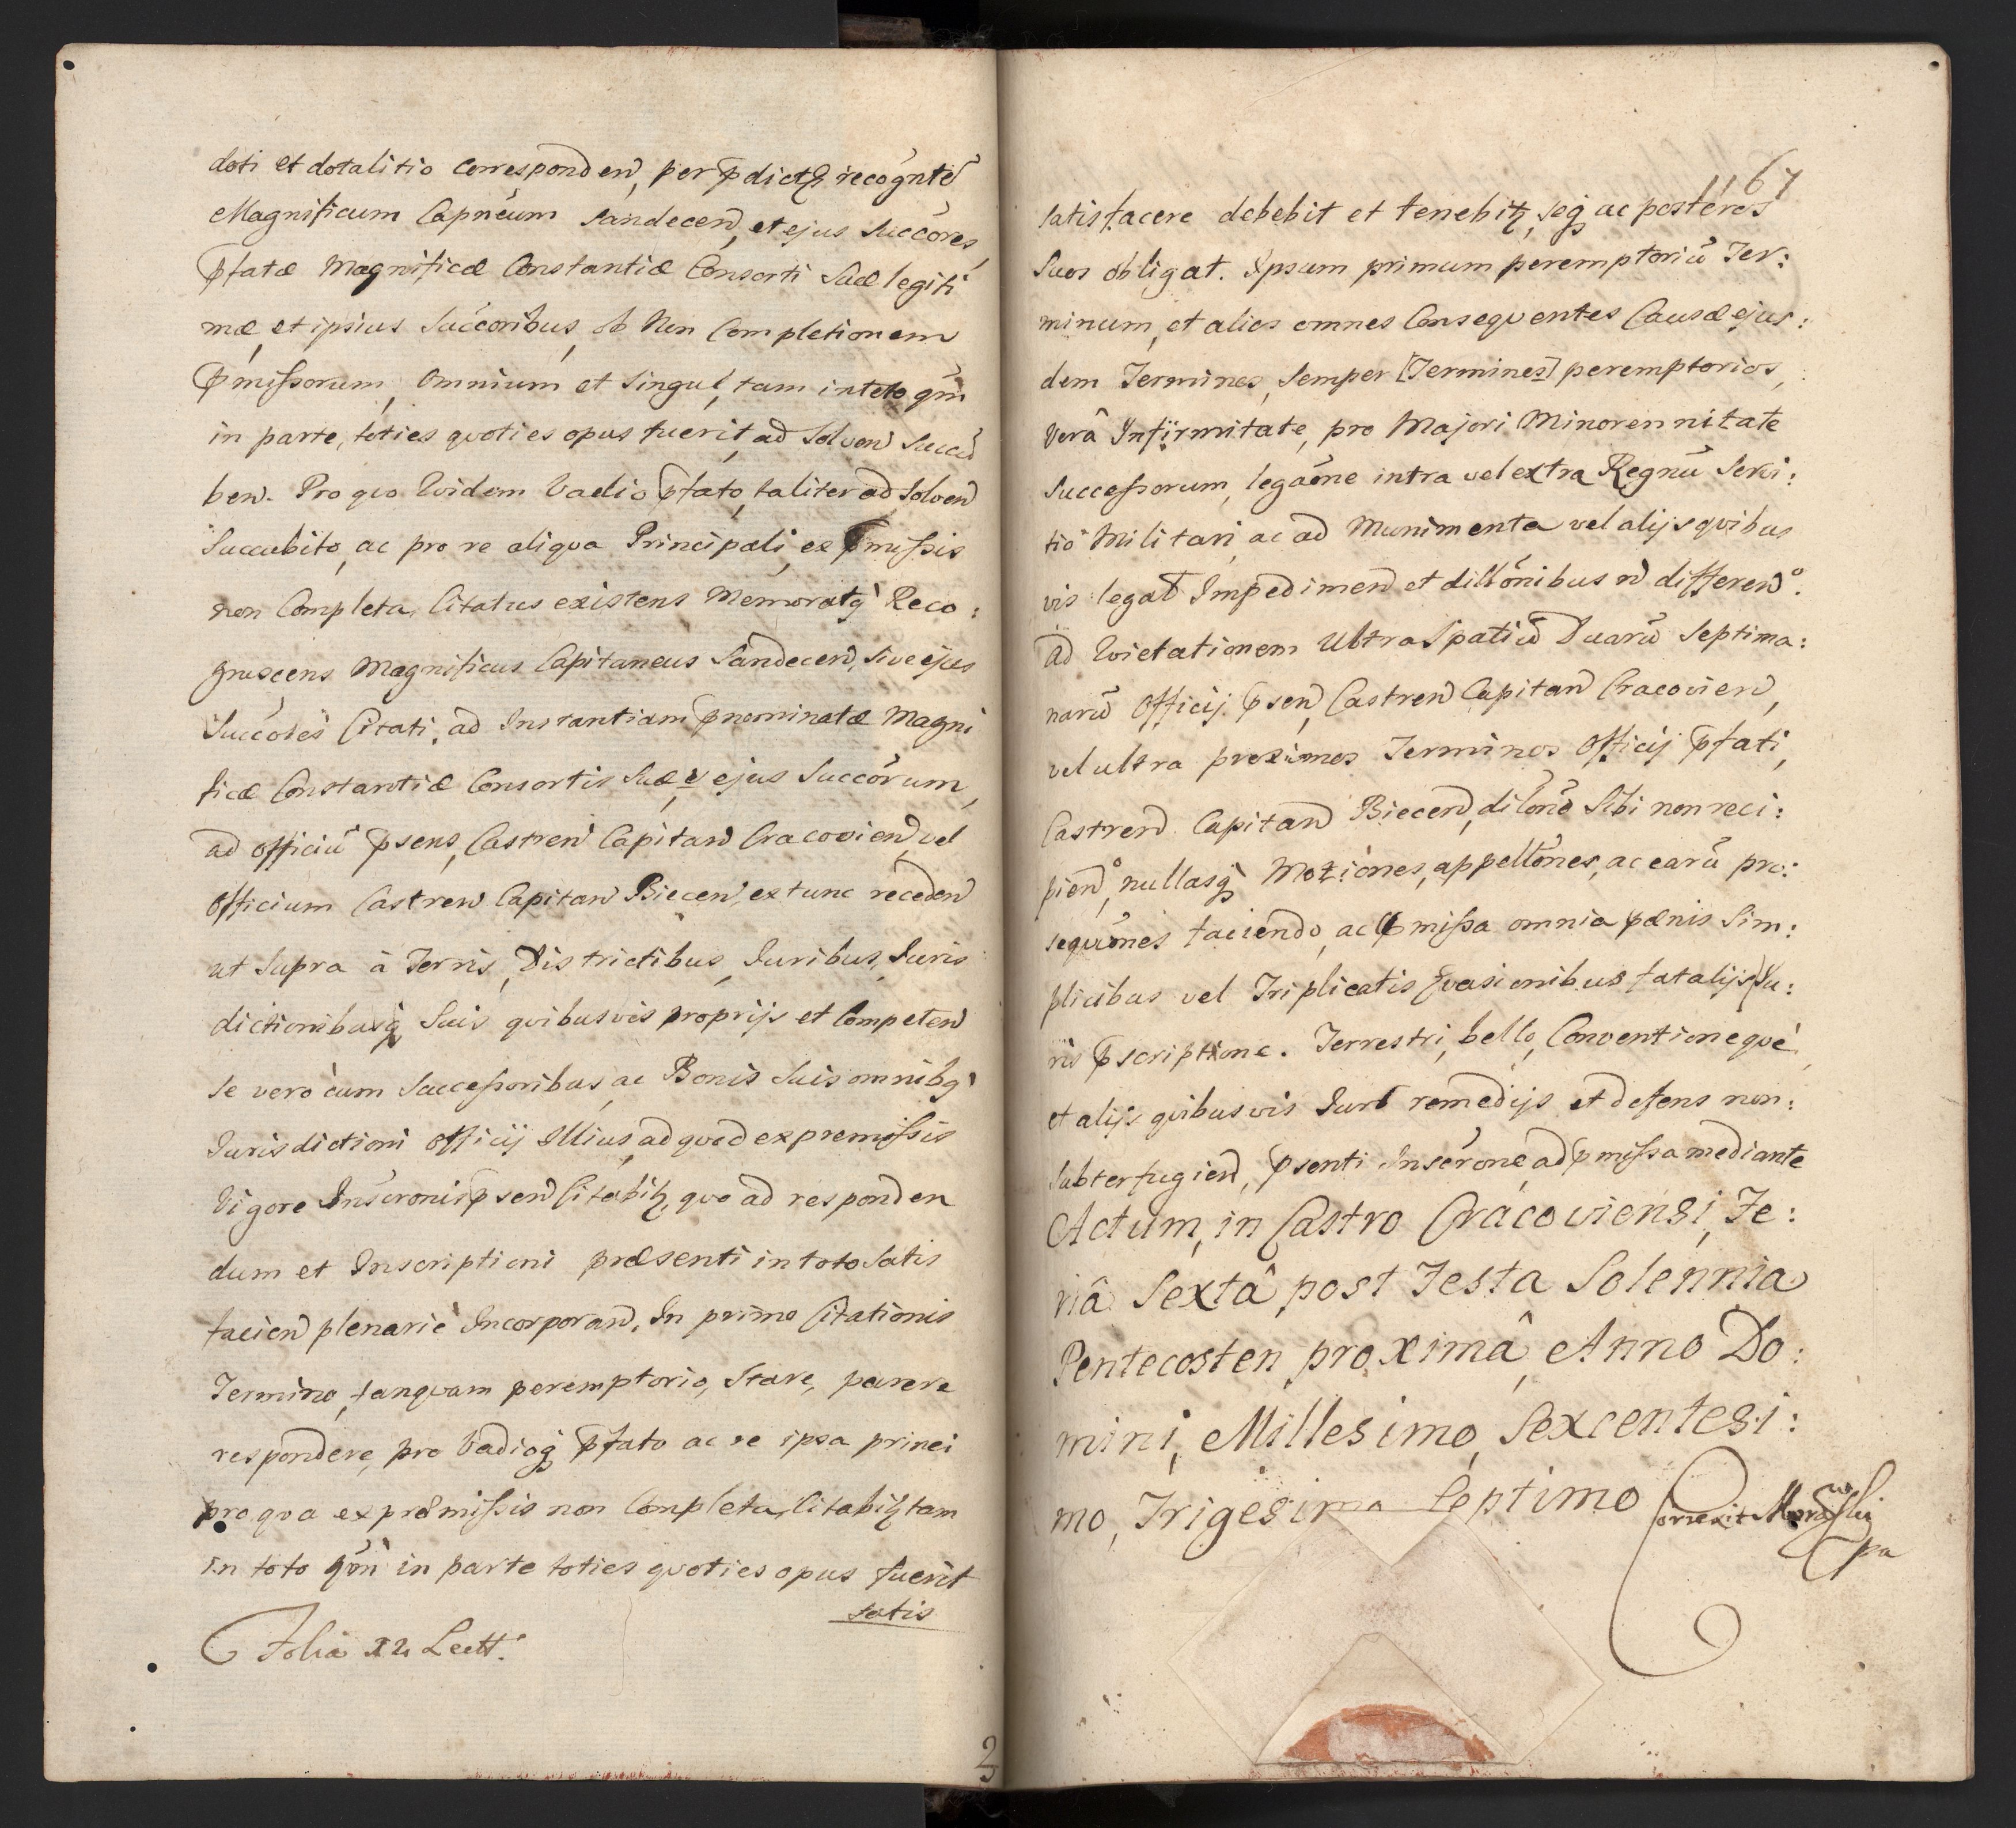 doti et dotalitio Corresponden̄, per p̄dictū recōgnte͂
Magnificum Capneum Sandecen̄, et ejus Succōres,
p̄fatæ Magnificæ Constantiæ Consorti Suæ legiti
mæ, et ipsius Succoribus, ob Non Completionem
p̄missorum, Omnium et Singul, tam in toto qm̄
in parte, toties quoties opus fuerit, ad Solven̄ Succū
ben̄. Pro quo Evidem Vadio p̄fato, taliter ad Solven̄
Succubito, ac pro re aliqua Principali, ex p̄missis
non Completa, Citatus existens Memoratq̄ Reco:
gnoscens Magnificus Capitaneus Sandecen̄, Sive ejus
Succores Citati, ad Instantiam p̄nominatæ Magni
ficæ Constantiæ Consortis Suæ, et ejus Succōrum,
ad Officiū p̄sens, Castren̄ Capitan̄ Cracovien̄, vel
Officium Castren̄ Capitan̄ Biecen̄, ex tunc receden̄
ut Supra à Terris, Districtibus, Iuribus, Iuris
dictionibusq̄ Suis quibusvis proprijs et Competen̄
se vero cum Successoribus, ac Bonis Suis omnibq̄
Iurisdictioni Officij Illius, ad quod ex premissis
Vigore Inscronis p̄sen̄ Citabitz, quo ad responden
dum et Inscriptioni præsenti in toto Satis
facien̄ plenariè Incorporan̄, In primo Citationis
Termino, tanquam peremptorio, Stare, parere
respondere, pro Vadioq̄ p̄fato ac re ipsa princi
pro qua ex præmissis non Completa, Citabitz tam
in toto qm̄ in parte toties quoties opus fuerit
satis
Folia XII Lectt.
67
satisfacere debebit et tenebitz, seq̄ ac postéros
Suos obligat. Ipsum primum peremptoriū Ter:
minum, et alios omnes Consequentes Causæ ejus:
dem Terminos, Semper [Terminos] peremptorios,
Verâ Infirmitate, pro Majori Minorennitate
Successorum, legāone intra vel extra Regnū Servi:
tio Militari, ac ad Munimenta vel alijs quibus
vis legal Impedimen̄ et dillōnibus n̄ differen̄º.
Ad Evictationem Ultra Spatiū Duarū Septima:
narū Officij p̄sen̄, Castren̄ Capitan̄ Cracovien̄,
vel ultra proximos Terminos Officij p̄fati,
Castren̄ Capitan̄ Biecen̄, dilōne Sibi non reci:
pien̄º, nullasq̄ Motiones, appellōnes, ac earū pro:
sequōnes faciendo, ac p̄missa omnia pænis Sim:
plicibus vel Triplicatis Evasionibus fatalijs, Iu:
ris p̄scriptione. Terrestri, bello, Conventioneque,
et alijs quibusvis Iurt remedijs et defens non:
subterfugien̄, p̄senti Inscrōne ad p̄missa mediante
Actum, in Castro Cracoviensi, Fe:
riâ Sextâ post Festa Solennia
Pentecosten proximâ, Anno Do:
mini, Millesimo, Sexcentesi:
mo, Trigesimo Septimo
Correxit
pa
2